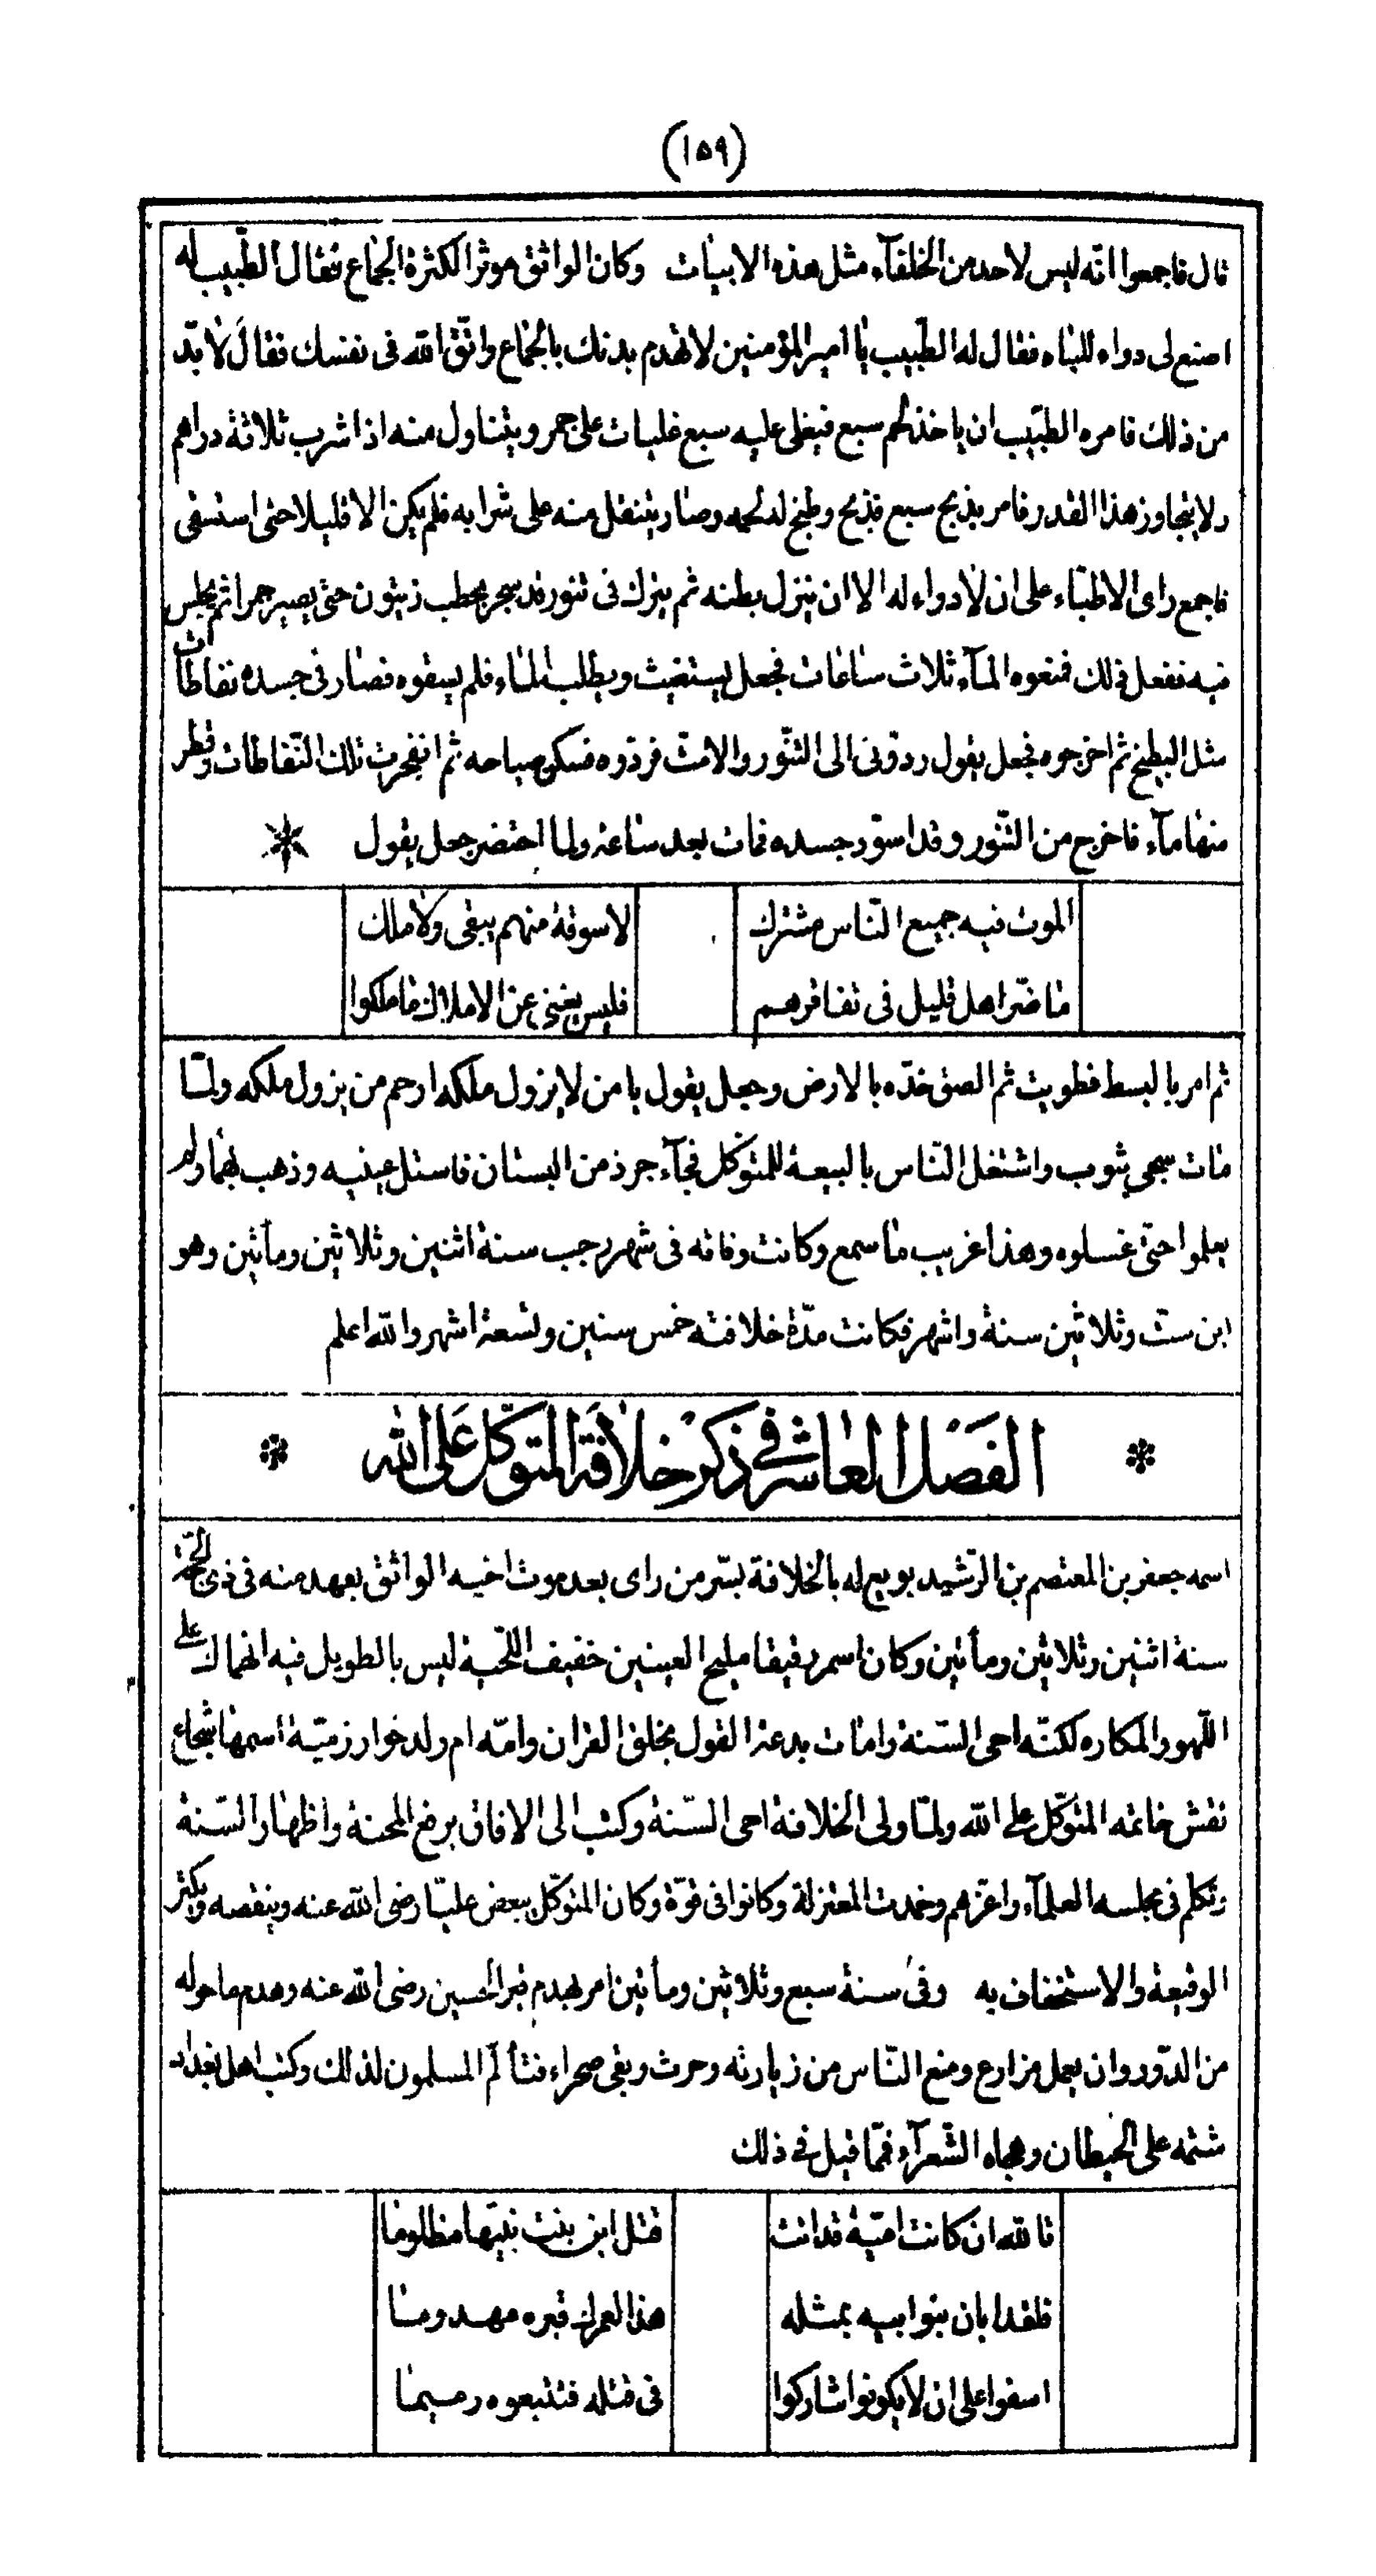 (١٥٩)
قال فاجمعوا انّه ليس لاحد من الخلفآء مثل هذه الابيات وكان الواثق موثرا لكثرة الجماع فقال الطّبيب له
اصنع لى دواء للباه فقال له الطّبيب يا امير المؤمنين لا تهدم بدنك بالجماع واتّق الله فى نفسك فقال لا بدّ
من ذلك فامره الطّبيب ان ياخذ لحم سبع فيغلى عليه سبع غليات على جمر ويتناول منه اذا شرب ثلاثة دراهم
ولا يتجاوز هذا القدر فامر بذبح سبع فذبح وطبخ له لحمه وصار يتنقل منه على شرابه فلم يكن الا قليلا حتى استسقى
فاجمع راى الاطبّاء على ان لا دواء له الا ان ينزل بطنه ثم يترك فى تنور قد سجر بحطب زيتون حتى يصير جمرا ثم يجلس
فيه ففعل ذلك فمنعوه المآء ثلاث ساعات فجعل يستغيث ويطلب الماء فلم يسقوه فصار فى جسده نفاطات
مثل البطيخ ثم اخرجوه فجعل يقول ردّونى الى التنّور والامتّ فردّوه فسكن صياحه ثم انفجرت تلك النّفاطات وقطر
منها مآء فاخرج من التنّور وقد اسوّد جسده فمات بعد ساعة ولما احتضر جعل يقول
الموت فيه جميع النّاس مشترك لا سوقة منهم يبقى ولا ملك
ما ضرّ اهل قليل فى تفاقرهم فليس يغنى عن الاملاك ما ملكوا
ثم امر بالبسط فطويت ثم الصق خدّه بالارض وجعل يقول يا من لا يزول ملكه ارحم من يزول ملكه ولمّا
مات سجى بثوب واشتغل النّاس بالبيعة للمتوكّل فجآء جرذ من البستان فاستل عينيه وذهب بهما ولم
يعلموا حتّى غسلوه وهذا غريب ما سمع وكانت وفاته فى شهر رجب سنة اثنين وثلاثين ومأتين وهو
ابن ستّ وثلاثين سنة واشهر فكانت مدّة خلافته خمس سنين وتسعة اشهر والله اعلم
الفصل العاشر في ذكر خلافة المتوكّل على الله
اسمه جعفر بن المعتصم بن الرّشيد بويع له بالخلافة بسّر من راى بعد موت اخيه الواثق بعهد منه فى ذى الحجّة
سنة اثنين وثلاثين ومأتين وكان اسمر رقيقا مليح العينين خفيف اللّحية ليس بالطويل فيه انهماك على
اللّهو والمكاره لكنّه احى السّنة وامات بدعة القول بخلق القران وامّه ام ولد خوارزميّة اسمها شجاع
نقش خاتمه المتوكّل على الله ولمّا ولى الخلافة احى السّنة وكتب الى الافاق برفع المحنة واظهار السّنة
وتكلم فى مجلسه العلمآء واعزّهم وخمدت المعتزلة وكانوا فى قوّة وكان المتوكّل يبغض عليّا رضى الله عنه وينقصه ويكثر
الوقيعة والاستخفاف به وفى سنة سبع وثلاثين ومأتين امر بهدم قبر الحسين رضى الله عنه وهدم ما حوله
من الدّور وان يعمل مزارع ومنع النّاس من زيارته وحرث وبقى صحراء فتألّم المسلمون لذلك وكتب اهل بغداد
شتمه على الحيطان وهجاه الشّعرآء فمّا قيل في ذلك
تالله ان كانت اميّة قد اتت قتل ابن بنت نبيّها مظلوما
فلقد ابان بنوابيه بمثله هذا لعمرك قبره مهدوما
اسفوا على ان لا يكونوا شاركوا فى قتله فتتبعوه رميما